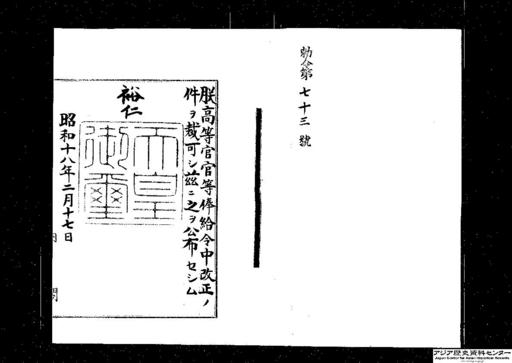 勅令第七十三號
朕高等官官等俸給令中改正ノ
件ヲ裁可シ茲ニ之ヲ公布セシム
裕仁
天皇
御璽
昭和十八年二月十七日
アジア歴史資料センター
Japan Center for Asian Historical Records